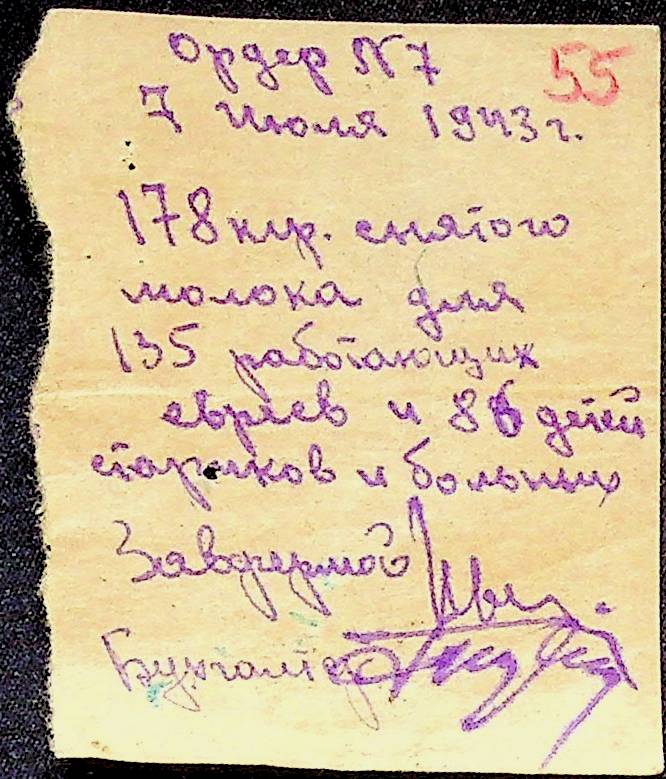 Ордер N7
55
7 июля 1943 г.
178 кгр. снятого
молока для
135 работающих
евреев и 86 детей
стариков и больных
Завфермой
Бухгалтер